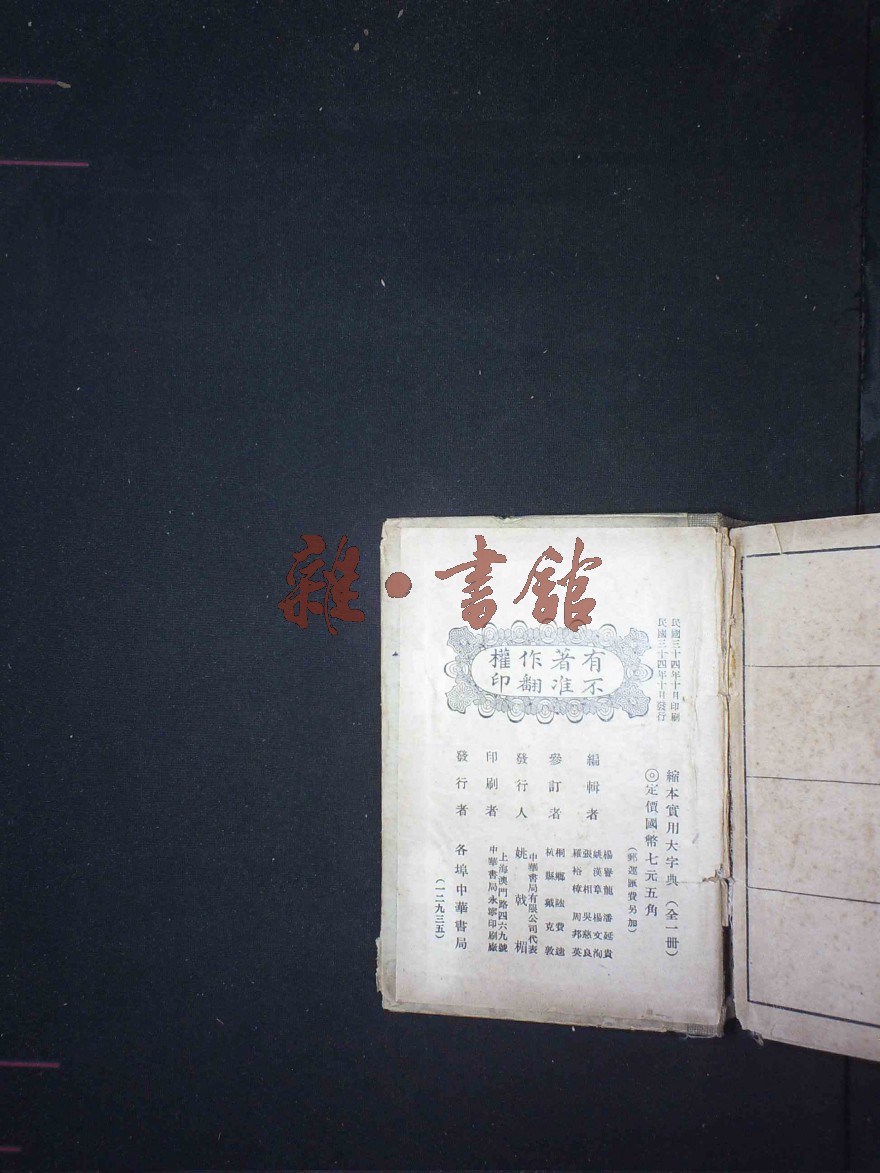 雜·書館
民國三十四年十月印刷
民國三十四年十月發行
有著作權
不准翻印
縮本實用大字典（全一冊）
◎定價國幣七元五角
（郵運匯費另加）
編輯者
楊譽龍 潘延貴
姚漢章 楊文洵
張相 吳慈良
羅裕樟 周邦英
參訂者
桐鄉陸費逵
杭縣戴克敦
發行人
中華書局有限公司代表
姚戟楣
印刷者
上海澳門路四六九號
中華書局永寧印刷廠
發行者
各埠中華書局
（一二九三五）